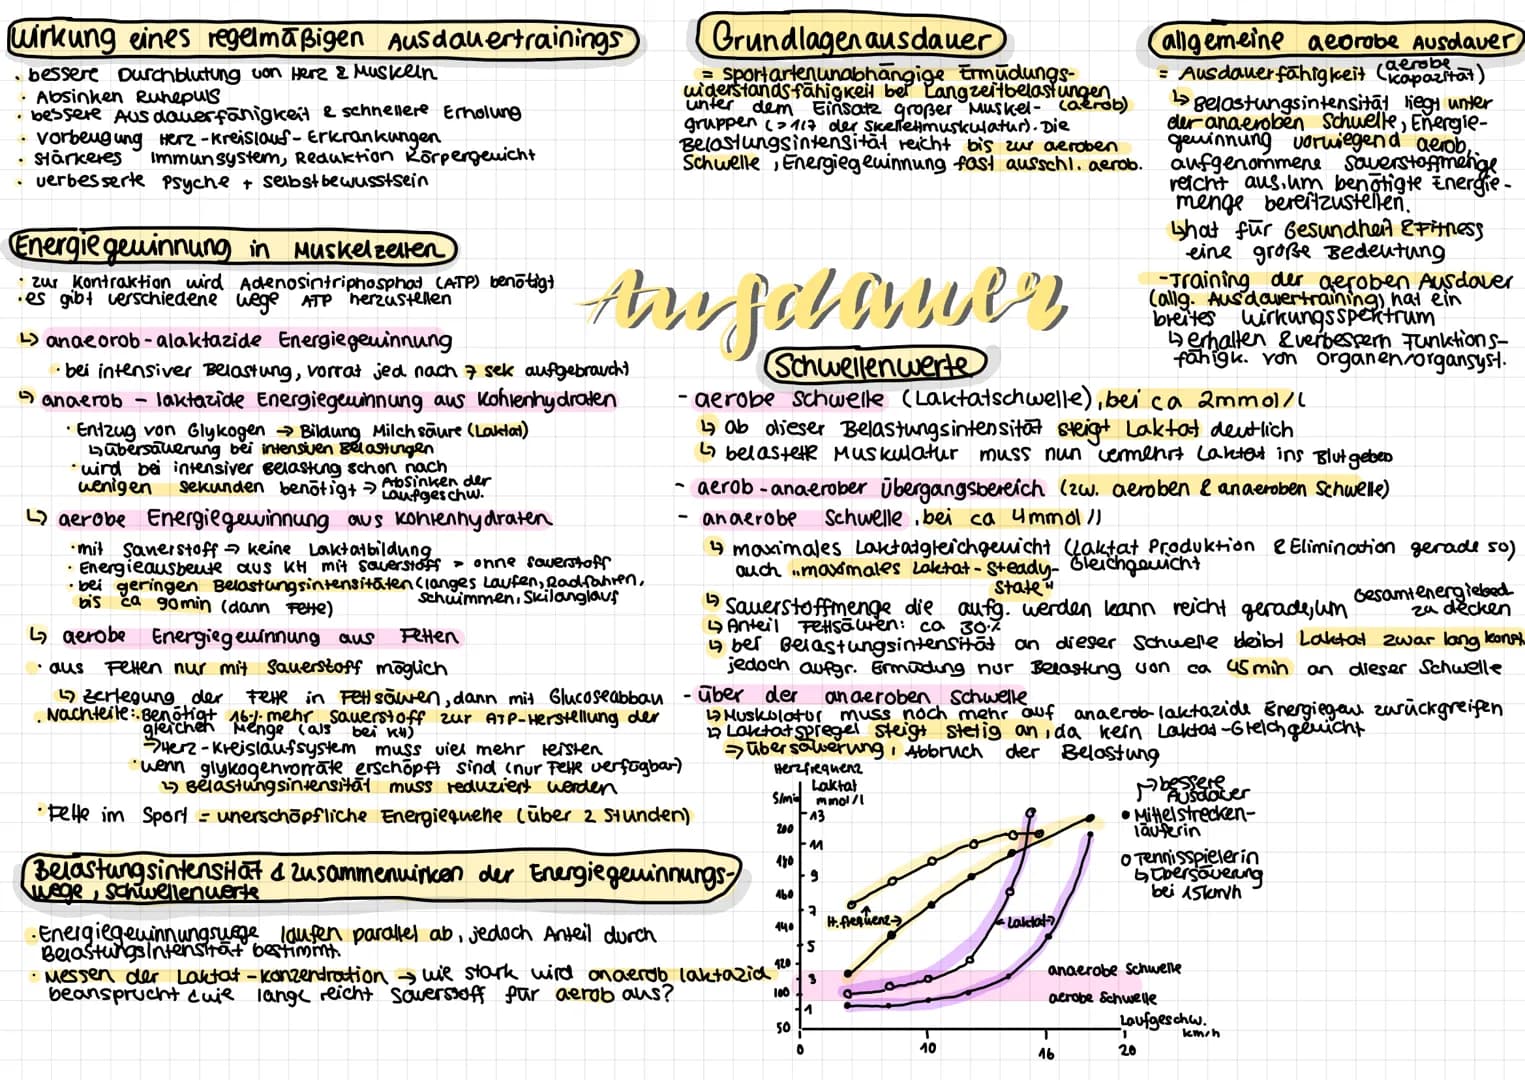 Wirkung eines regelmäßigen Ausdauertrainings
· bessere Durchblutung von Herz & Muskeln
· Absinken Ruhepuls
· bessere Ausdauerfähigkeit & schnellere Erholung
· Vorbeugung Herz-Kreislauf-Erkrankungen
· stärkeres Immunsystem, Reduktion Körpergewicht
· verbesserte Psyche + Selbstbewusstsein
Energiegewinnung in Muskelzellen
· zur Kontraktion wird Adenosintriphosphat (ATP) benötigt
· es gibt verschiedene Wege ATP herzustellen
↳ anaeorob-alaktazide Energiegewinnung
· bei intensiver Belastung, vorrat jed nach 7 sek aufgebraucht
↳ anaerob - laktazide Energiegewinnung aus Kohlenhydraten
· Entzug von Glykogen → Bildung Milchsäure (Laktat)
↳ übersäuerung bei intensiven Belastungen
· wird bei intensiver Belastung schon nach
wenigen Sekunden benötigt → Absinken der
Laufgeschw.
↳ aerobe Energiegewinnung aus Kohlenhydraten
· mit Sauerstoff → keine Laktatbildung
· Energieausbeute aus KH mit Sauerstoff > ohne Sauerstoff
· bei geringen Belastungsintensitäten (langes Laufen, Radfahren,
bis ca 90min (dann Fette) Schwimmen, Skilanglauf
↳ aerobe Energiegewinnung aus Fetten
· aus Fetten nur mit Sauerstoff möglich
↳ Zerlegung der Fette in Fettsäuren, dann mit Glucoseabbau
· Nachteile: · Benötigt 16% mehr Sauerstoff zur ATP-Herstellung der
gleichen Menge (als bei KH)
→ Herz-Kreislaufsystem muss viel mehr leisten
· wenn glykogenvorräte erschöpft sind (nur Fette verfügbar)
↳ Belastungsintensität muss reduziert werden
· Fette im Sport = unerschöpfliche Energiequelle (über 2 Stunden)
Belastungsintensität & Zusammenwirken der Energiegewinnungs-
wege, Schwellenwerte
· Energiegewinnungswege laufen parallel ab, jedoch Anteil durch
Belastungsintensität bestimmt.
· Messen der Laktat-Konzentration → wie stark wird anaerob laktazid
beansprucht & wie lange reicht Sauerstoff für aerob aus?
Grundlagenausdauer
= sportartenunabhängige Ermüdungs-
widerstandsfähigkeit bei Langzeitbelastungen
unter dem Einsatz großer Muskel- (aerob)
gruppen (> 1/7 der Skelettmuskulatur). Die
Belastungsintensität reicht bis zur aeroben
Schwelle, Energiegewinnung fast ausschl. aerob.
allgemeine aeorobe Ausdauer
= Ausdauerfähigkeit (aerobe
kapazität)
↳ Belastungsintensität liegt unter
der anaeroben Schwelle, Energie-
gewinnung vorwiegend aerob,
aufgenommene Sauerstoffmenge
reicht aus, um benötigte Energie-
menge bereitzustellen.
↳ hat für Gesundheit & Fitness
eine große Bedeutung
- Training der aeroben Ausdauer
(allg. Ausdauertraining) hat ein
breites Wirkungsspektrum
↳ erhalten & verbessern Funktions-
fähigk. von Organen/organsyst.
Ausdauer
Schwellenwerte
- aerobe Schwelle (Laktatschwelle), bei ca 2mmol/l
↳ ab dieser Belastungsintensität steigt Laktat deutlich
↳ belastete Muskulatur muss nun vermehrt Laktat ins Blut geben
- aerob-anaerober Übergangsbereich (zw. aeroben & anaeroben Schwelle)
- anaerobe Schwelle, bei ca 4mmol/l
↳ maximales Laktatgleichgewicht (Laktat Produktion & Elimination gerade so)
Gleichgewicht
auch „maximales Laktat-Steady-
State"
↳ Sauerstoffmenge die aufg. werden kann reicht gerade, um Gesamtenergiebed.
zu decken
↳ Anteil Fettsäuren: ca 30%
↳ bei Belastungsintensität an dieser Schwelle bleibt Laktat zwar lang konst.
jedoch aufgr. Ermüdung nur Belastung von ca 45min an dieser Schwelle
- über der anaeroben Schwelle
↳ Muskulatur muss noch mehr auf anaerob-laktazide Energiegew. zurückgreifen
↳ Laktatspiegel steigt stetig an, da kein Laktat-Gleichgewicht
→ Übersäuerung, Abbruch der Belastung
Herzfrequenz
S/min
Laktat
mmol/l
13
200
11
180
9
160
7
140
5
120
3
100
1
50
0
10
16
20
H.frequenz→
←Laktat→
anaerobe Schwelle
aerobe Schwelle
Laufgeschw.
km/h
→ bessere
Ausdauer
• Mittelstrecken-
läuferin
o Tennisspielerin
↳ Übersäuerung
bei 15km/h